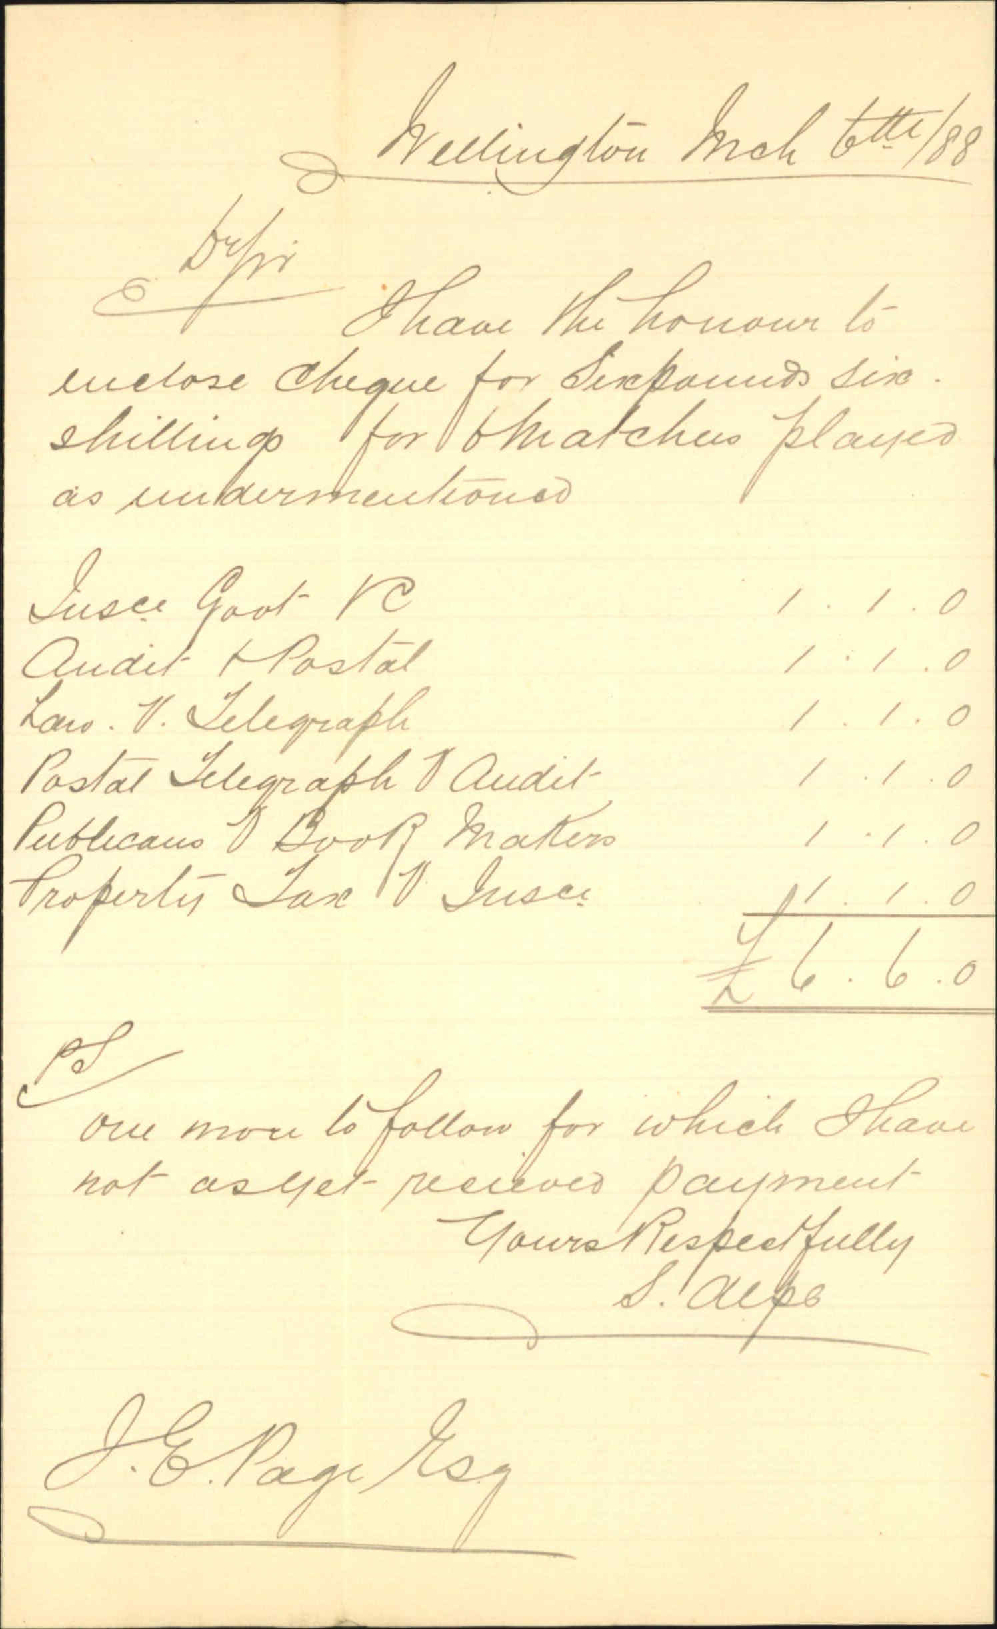 Wellington Mch 6th/88
Dr Sir
I have the honour to
enclose cheque for Six pounds six
shillings for 6 Matches played
as undermentioned
Insce Govt V C 1.1.0
Audit & Postal 1.1.0
Law. V. Telegraph 1.1.0
Postal Telegraph V Audit 1.1.0
Publicans V Book Makers 1.1.0
Property Tax V Insce 1.1.0
£6.6.0
PS
one more to follow for which I have
not as yet recieved payment
Yours Respectfully
S. Alps
J. E. Page Esq